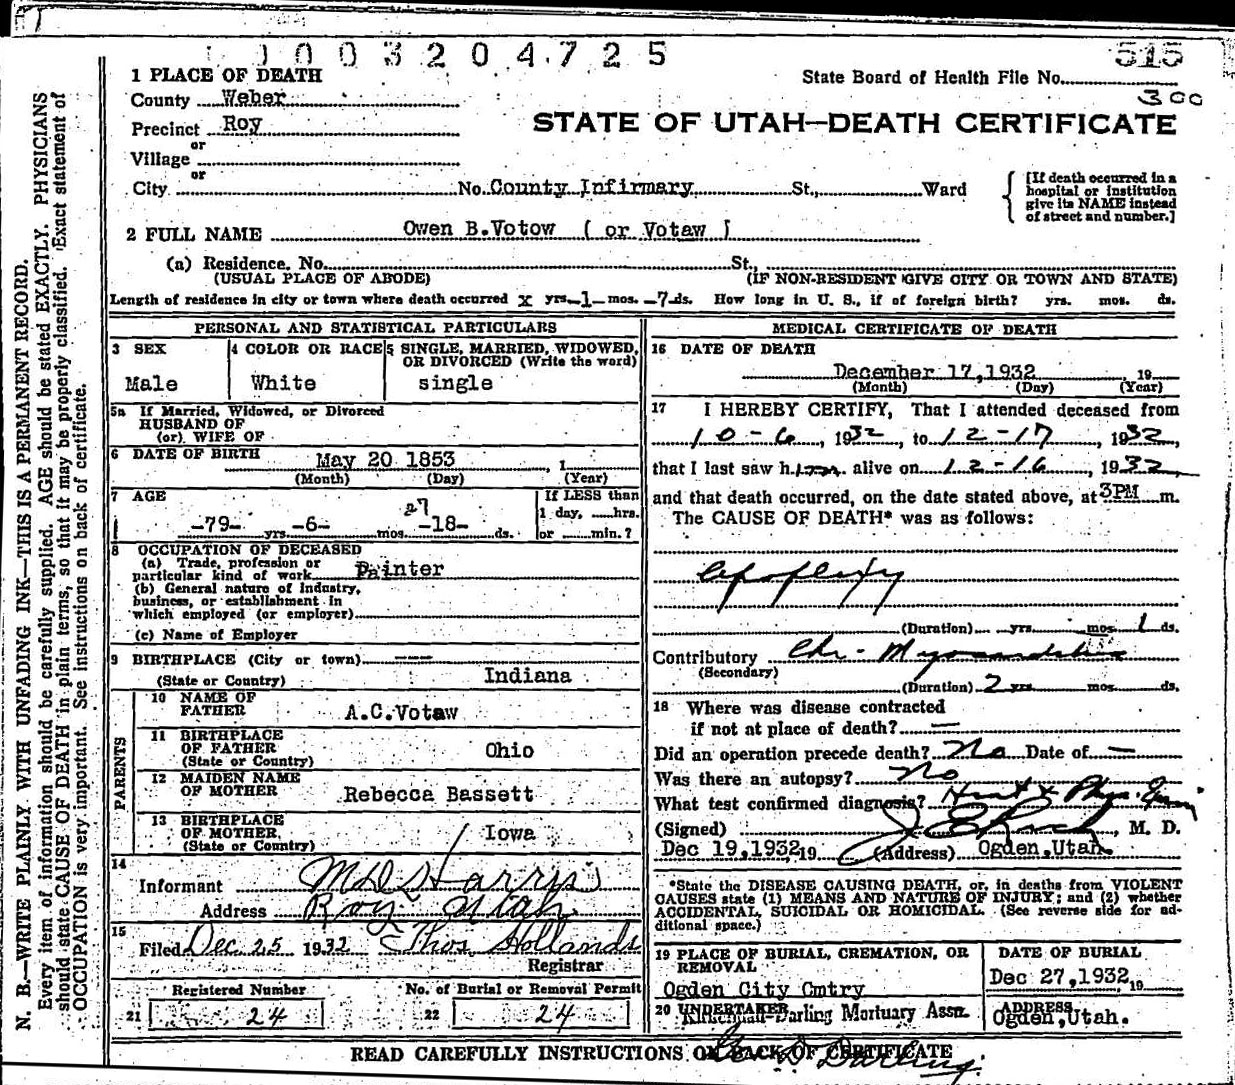 1003204725
515
1 PLACE OF DEATH
State Board of Health File No.
County Weber
300
Precinct Roy
STATE OF UTAH—DEATH CERTIFICATE
or
Village
or
City No. County Infirmary St., Ward
[If death occurred in a
hospital or institution
give its NAME instead
of street and number.]
2 FULL NAME Owen B.Votow ( or Votaw )
(a) Residence. No. St.,
(USUAL PLACE OF ABODE) (IF NON-RESIDENT GIVE CITY OR TOWN AND STATE)
Length of residence in city or town where death occurred x yrs. -1- mos. -7- ds. How long in U. S., if of foreign birth? yrs. mos. ds.
PERSONAL AND STATISTICAL PARTICULARS
3 SEX
Male
4 COLOR OR RACE
White
5 SINGLE, MARRIED, WIDOWED,
OR DIVORCED (Write the word)
single
5a If Married, Widowed, or Divorced
HUSBAND OF
(or) WIFE OF
6 DATE OF BIRTH May 20 1853 , 1
(Month) (Day) (Year)
7 AGE
27
-79- yrs. -6- mos. -18- ds.
If LESS than
1 day, hrs.
or min.?
8 OCCUPATION OF DECEASED
(a) Trade, profession or
particular kind of work Painter
(b) General nature of industry,
business, or establishment in
which employed (or employer)
(c) Name of Employer
9 BIRTHPLACE (City or town) ---
(State or Country) Indiana
PARENTS
10 NAME OF
FATHER A.C.Votaw
11 BIRTHPLACE
OF FATHER Ohio
(State or Country)
12 MAIDEN NAME
OF MOTHER Rebecca Bassett
13 BIRTHPLACE
OF MOTHER Iowa
(State or Country)
14
Informant M D Harris
Address Roy Utah
15
Filed Dec 25 1932 Thos. Hollands
Registrar
Registered Number
21 24
No. of Burial or Removal Permit
22 24
MEDICAL CERTIFICATE OF DEATH
16 DATE OF DEATH
December 17,1932 , 19
(Month) (Day) (Year)
17 I HEREBY CERTIFY, That I attended deceased from
10-6, 1932, to 12-17, 1932,
that I last saw him alive on 12-16, 1932,
and that death occurred, on the date stated above, at 3PM m.
The CAUSE OF DEATH* was as follows:
Apoplexy
(Duration) yrs. mos. 1 ds.
Contributory Chr- Myocarditis
(Secondary)
(Duration) 2 yrs. mos. ds.
18 Where was disease contracted
if not at place of death? —
Did an operation precede death? No Date of —
Was there an autopsy? No
What test confirmed diagnosis? Hist & Phys.
(Signed) , M. D.
Dec 19,1932 19 (Address) Ogden,Utah.
*State the DISEASE CAUSING DEATH, or, in deaths from VIOLENT
CAUSES state (1) MEANS AND NATURE OF INJURY; and (2) whether
ACCIDENTAL, SUICIDAL OR HOMICIDAL. (See reverse side for ad-
ditional space.)
19 PLACE OF BURIAL, CREMATION, OR
REMOVAL
Ogden City Cmtry
DATE OF BURIAL
Dec 27,1932, 19
20 UNDERTAKER
Kirkendall-Darling Mortuary Assn.
ADDRESS
Ogden,Utah.
READ CAREFULLY INSTRUCTIONS ON BACK OF CERTIFICATE
D Darling.
N. B.—WRITE PLAINLY WITH UNFADING INK—THIS IS A PERMANENT RECORD.
Every item of information should be carefully supplied. AGE should be stated EXACTLY. PHYSICIANS
should state CAUSE OF DEATH in plain terms, so that it may be properly classified. Exact statement of
OCCUPATION is very important. See instructions on back of certificate.